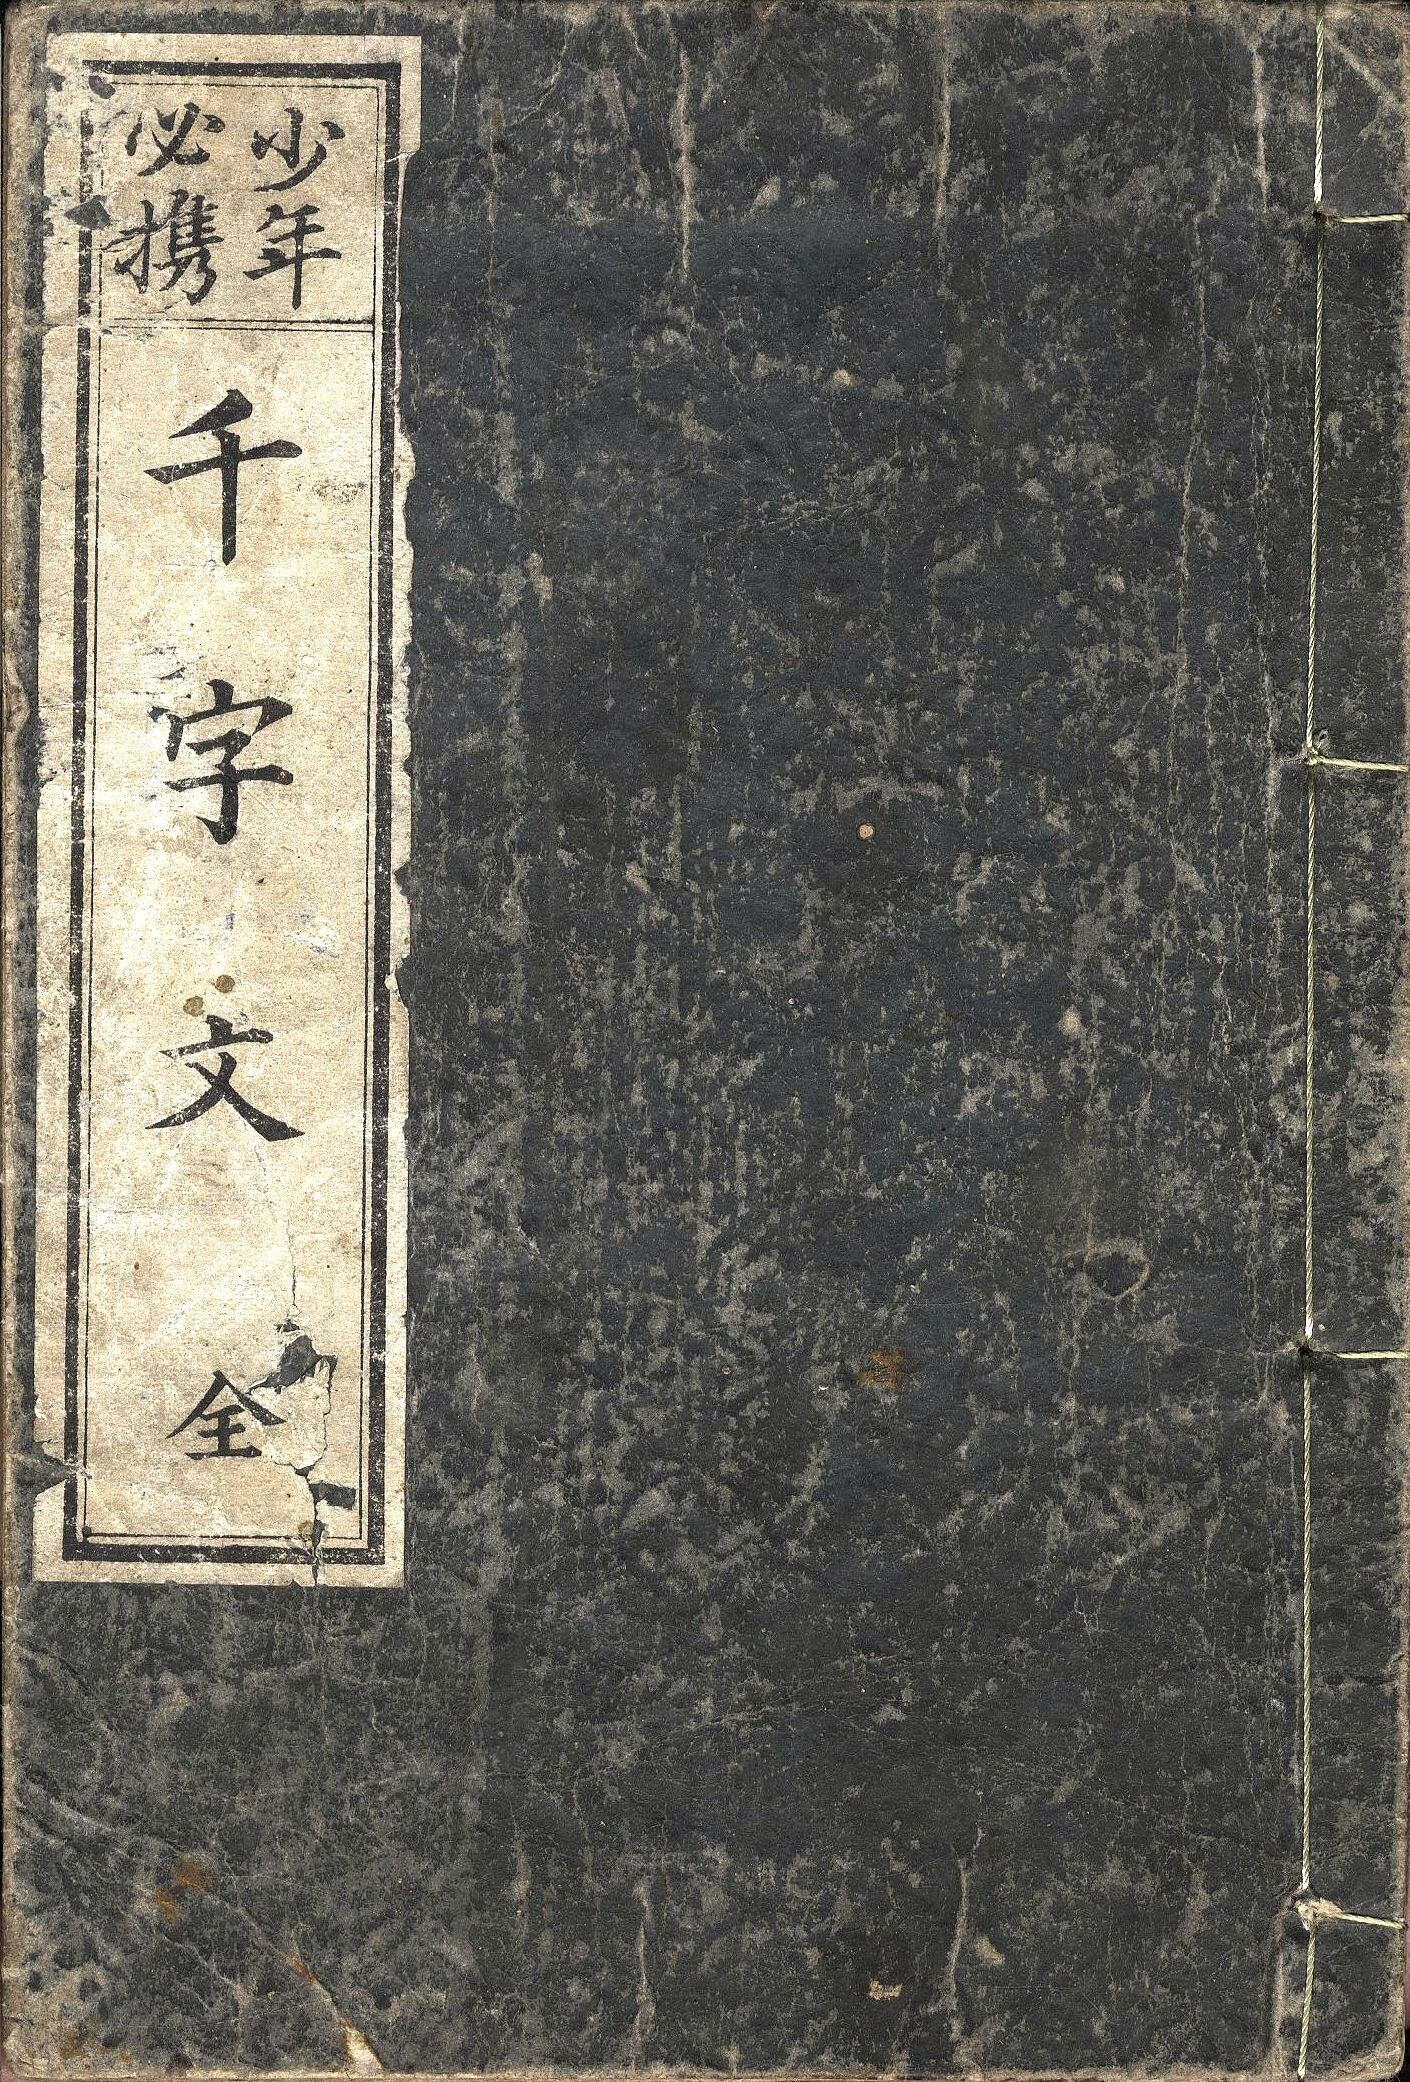 少年
必携
千字文 全